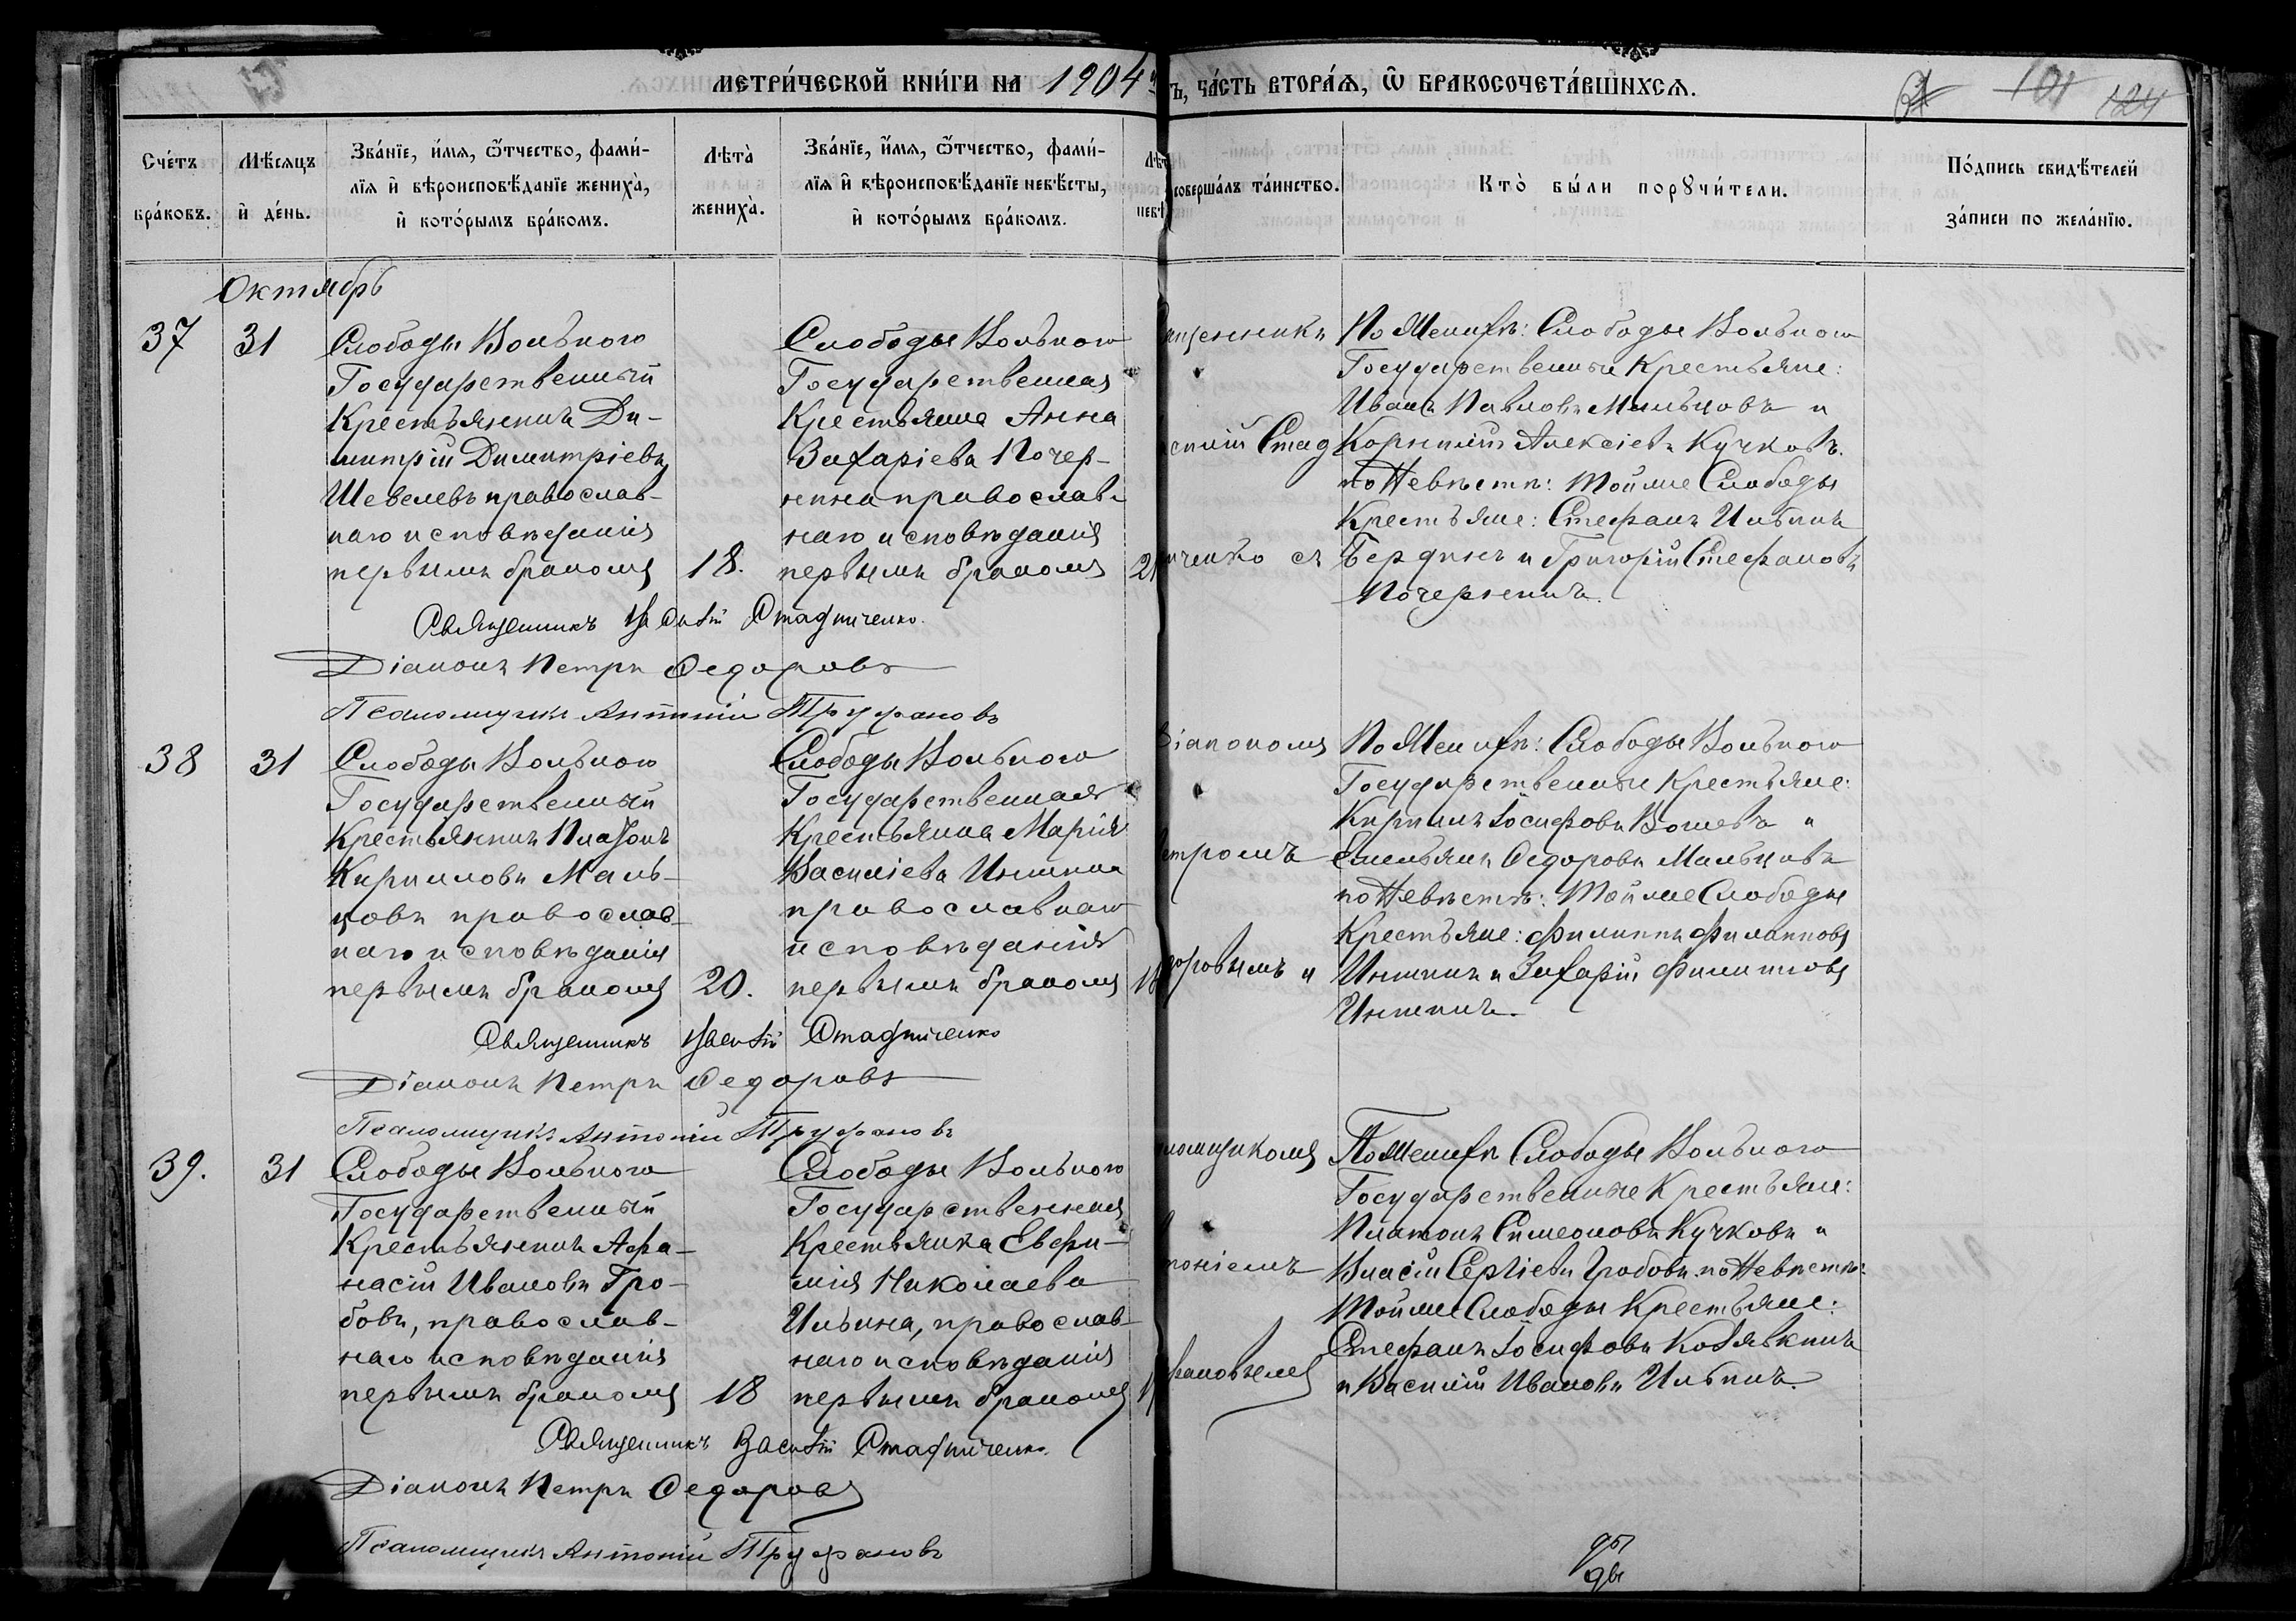 МЕТРИ́ЧЕСКОЙ КНИ́ГИ НА 1904
ЧА́СТЬ ВТОРА́Ѧ, Ѽ БРАКОСОЧЕТА́ВШИХСѦ.
101
124
Сче́тъ бра́ковъ.
Мѣ́сяцъ и҆ де́нь.
Зва́нїе, и҆́мѧ, ѻ҆́тчество, фами́-
лїѧ и҆ вѣроисповѣ́данїе жениха̀,
и҆ кото́рымъ бра́комъ.
Лѣта̀ жениха̀.
Зва́нїе, и҆́мѧ, ѻ҆́тчество, фами́-
лїѧ и҆ вѣроисповѣ́данїе невѣ́сты,
и҆ кото́рымъ бра́комъ.
соверша́лъ та́инство.
Кто̀ бы́ли порꙋчи́тели.
По́дпись свидѣ́телей
за́писи по жела́нїю.
Октябрь
37
31
Слободы Вольного
Государственный
Крестьянинъ Ди-
митрій Димитріевъ
Шевелевъ православ-
наго исповѣданія
первымъ бракомъ
18.
Слободы Вольного
Государственная
Крестьянка Анна
Захаріева Почер-
нина православ-
наго исповѣданія
первымъ бракомъ
21
По Женихѣ: Слободы Вольного
Государственные Крестьяне:
Иванъ Павловъ Мальцовъ и
Корнилій Алексіевъ Кучковъ.
по Невѣстѣ: Тойже Слободы
Крестьяне: Стефанъ Ильинъ
Бердинъ и Григорій Стефановъ
Почернинъ.
Священникъ Василій Стадниченко.
Діаконъ Петръ Федоровъ
Псаломщикъ Антоній Труфановъ
38
31
Слободы Вольного
Государственный
Крестьянинъ Платонъ
Кирилловъ Маль-
цовъ православ-
наго исповѣданія
первымъ бракомъ
20.
Слободы Вольного
Государственная
Крестьянка Марія
Василіева Иншина
православнаго
исповѣданія
первымъ бракомъ
діакономъ
По Женихѣ: Слободы Вольного
Государственные Крестьяне:
Кириллъ Іосифовъ и
Емельянъ Федоровъ Мальцовъ
по Невѣстѣ: Тойже Слободы
Крестьяне: Филиппъ Филипповъ
Иншинъ и Захарій Филипповъ
Иншинъ.
Священникъ Василій Стадниченко
Діаконъ Петръ Федоровъ
Псаломщикъ Антоній Труфановъ
39.
31
Слободы Вольного
Государственный
Крестьянинъ Афа-
насій Ивановъ Гро-
бовъ, православ-
наго исповѣданія
первымъ бракомъ
18
Слободы Вольного
Государственная
Крестьянка Евфи-
мія Николаева
Ильина, православ-
наго исповѣданія
первымъ бракомъ
По Женихѣ Слободы Вольного
Государственные Крестьяне:
Платонъ Симеоновъ Кучковъ и
Власій Сергіевъ Гробовъ. по Невѣстѣ:
Тойже Слободы Крестьяне:
Стефанъ Іосифовъ Козявкинъ
и Василій Ивановъ Ильинъ.
Священникъ Василій Стадниченко.
Діаконъ Петръ Федоровъ
Псаломщикъ Антоній Труфановъ